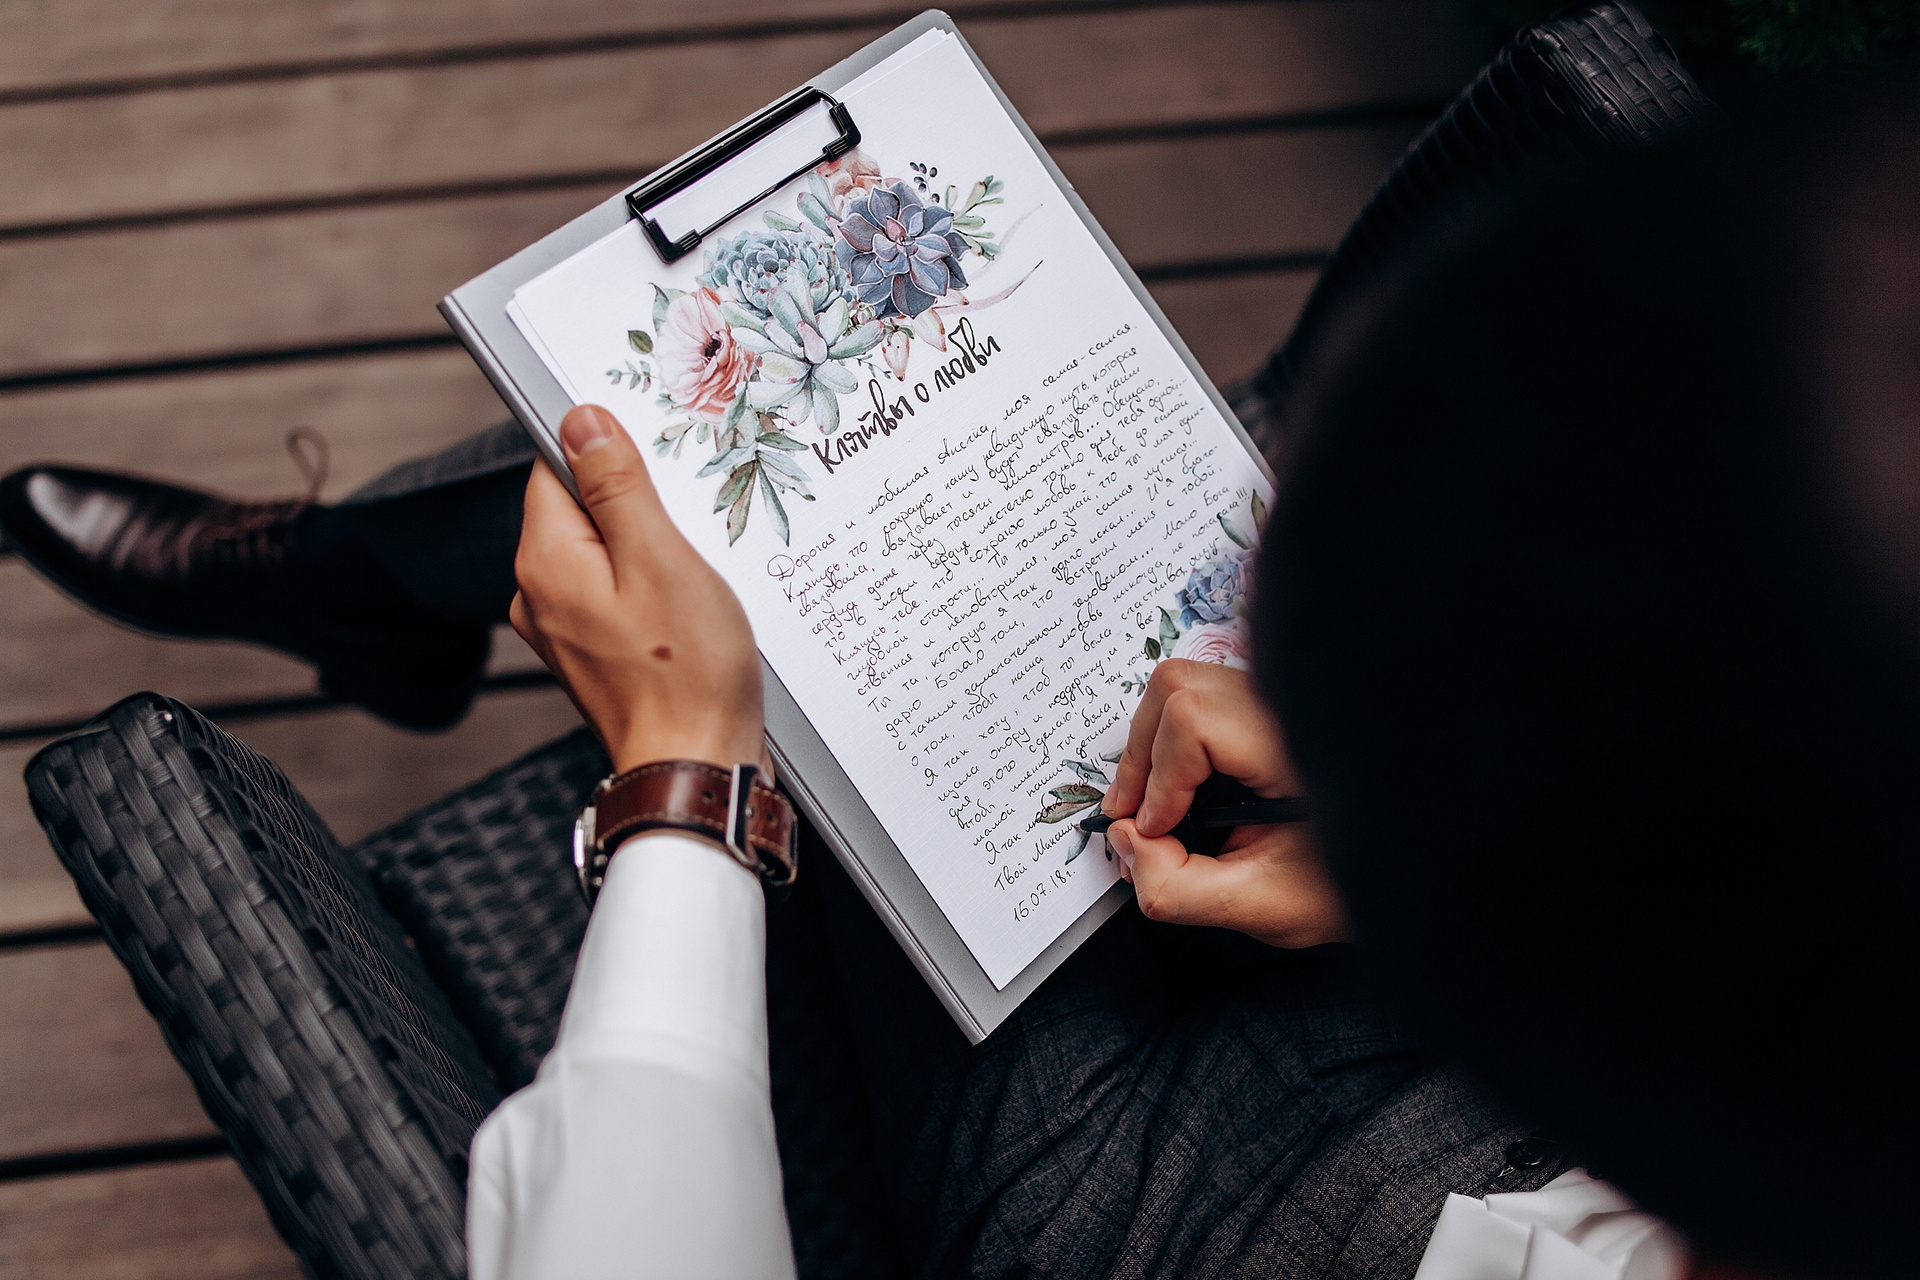 Клятвы о любви
Дорогая и любимая Анечка, моя самая-самая.
Клянусь, что сохраню нашу невидимую нить, которая
связывала, связывает и будет связывать наши
сердца даже через тысячи километров... Обещаю,
что в моем сердце местечко только для тебя одной...
Клянусь тебе, что сохраню любовь к тебе до самой
глубокой старости... Ты только знай, что ты моя един-
ственная и неповторимая, моя самая лучшая...
Ты та, которую я так долго искал... И я благо-
дарю Бога о том, что встретил меня с тобой,
с таким замечательным человеком... Молю Бога
о том, чтобы наша любовь никогда не погасала!!!
Я так хочу, чтоб ты была счастлива,
щала опору и поддержку, и я всё
для этого сделаю. Я так хочу
чтобы именно ты была
мамой наших детишек!
Я так люблю тебя!!!
Твой
15.07.18г.